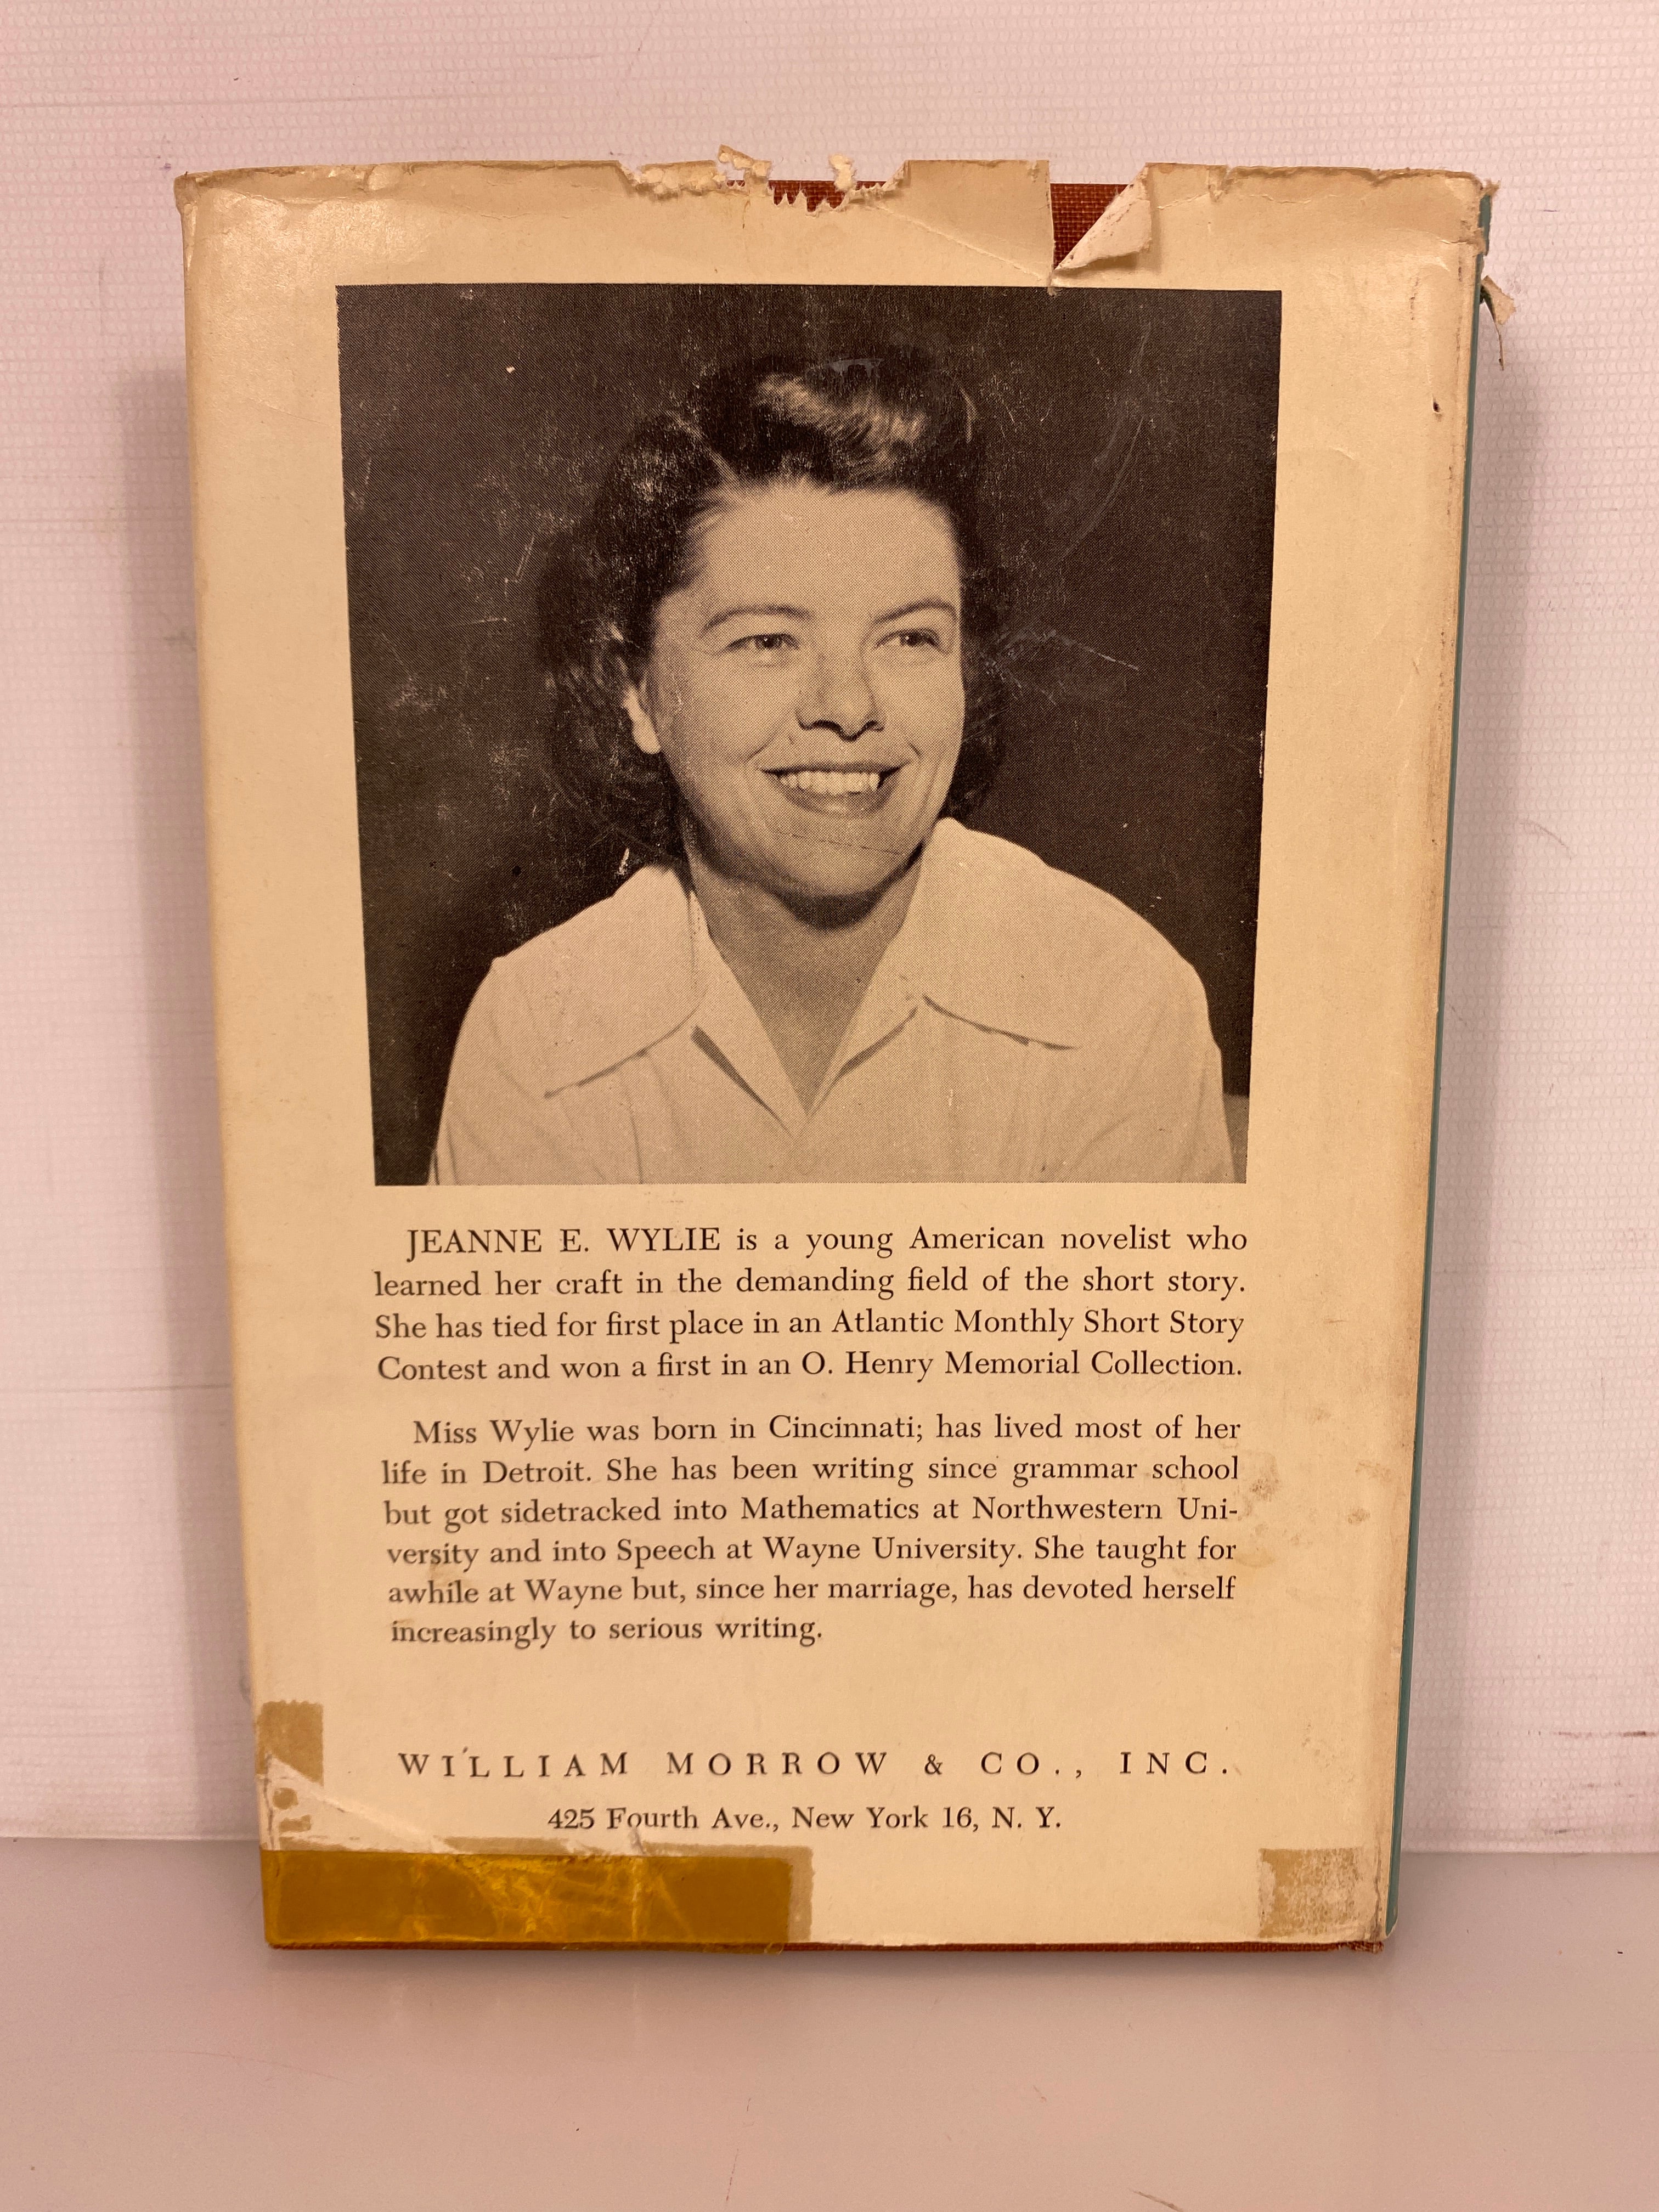 JEANNE E. WYLIE is a young American novelist who
learned her craft in the demanding field of the short story.
She has tied for first place in an Atlantic Monthly Short Story
Contest and won a first in an O. Henry Memorial Collection.
Miss Wylie was born in Cincinnati; has lived most of her
life in Detroit. She has been writing since grammar school
but got sidetracked into Mathematics at Northwestern Uni-
versity and into Speech at Wayne University. She taught for
awhile at Wayne but, since her marriage, has devoted herself
increasingly to serious writing.
WILLIAM MORROW & CO., INC.
425 Fourth Ave., New York 16, N. Y.